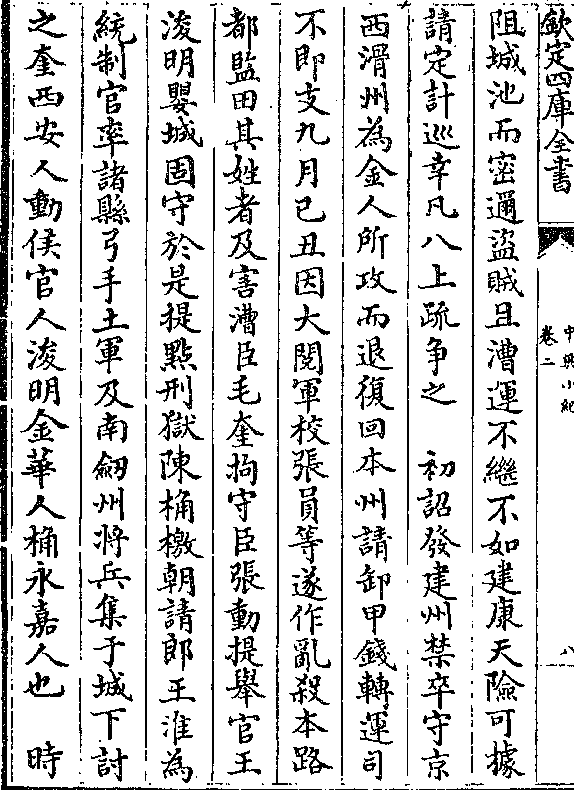 欽定四庫全書
中興小紀
卷二
八
阻城池而密邇盜賊且漕運不繼不如建康天險可據
請定計巡幸凡八上疏争之　初詔發建州禁卒守京
西滑州為金人所攻而退復回本州請卸甲錢轉運司
不即支九月己丑因大閱軍校張員等遂作亂殺本路
都監田其姓者及害漕臣毛奎拘守臣張動提舉官王
浚明嬰城固守於是提㸃刑獄陳桷檄朝請郎王淮為
統制官率諸縣弓手土軍及南劒州將兵集于城下討
之奎西安人動侯官人浚明金華人桷永嘉人也　時